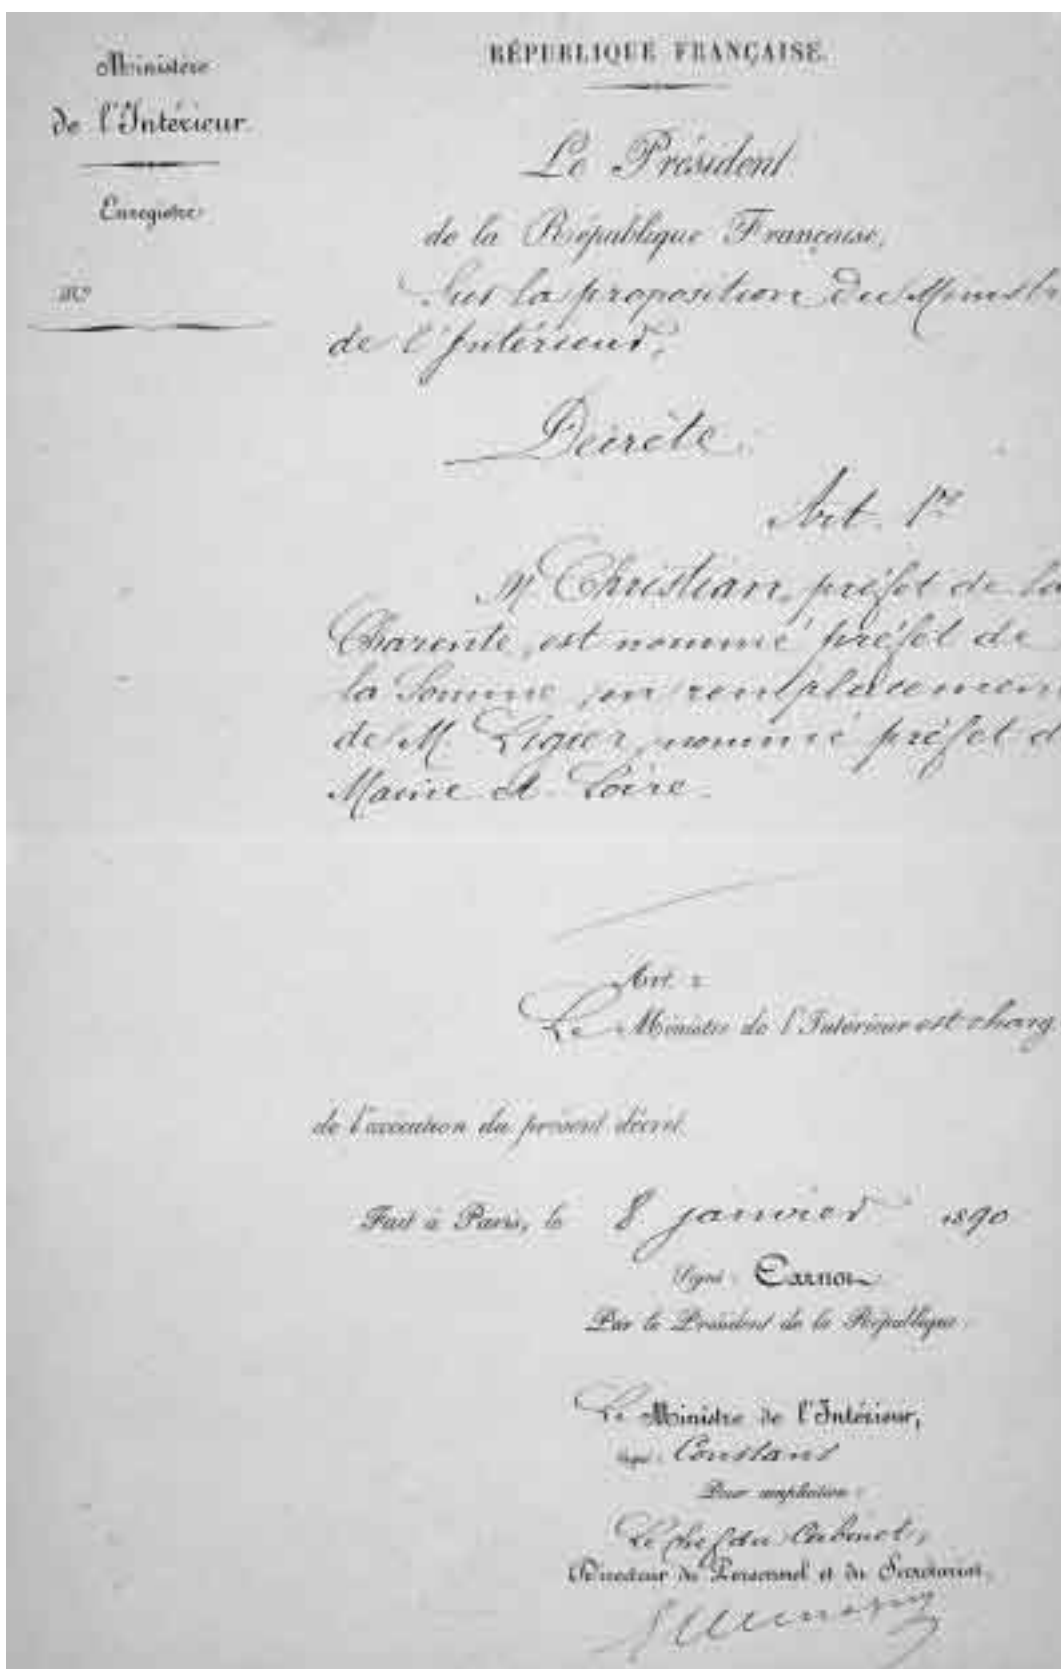 Ministère
de l'Intérieur
Enregistré
N°
RÉPUBLIQUE FRANÇAISE.
Le Président
de la République Française,
Sur la proposition du Ministr
de l'Intérieur,
Décrète:
Art. 1er
M. Christian, préfet de la
Charente, est nommé préfet de
la Somme, en remplacemen
de M. Ligier, nommé préfet d
Maine et Loire.
Art. 2
Le Ministre de l'Intérieur est charg
de l'exécution du présent décret.
Fait à Paris, le 8 janvier 1890
Signé: Carnot
Par le Président de la République:
Le Ministre de l'Intérieur,
Signé: Constans
Pour ampliation:
Le Chef du Cabinet,
Directeur du Personnel et du Secrétariat,